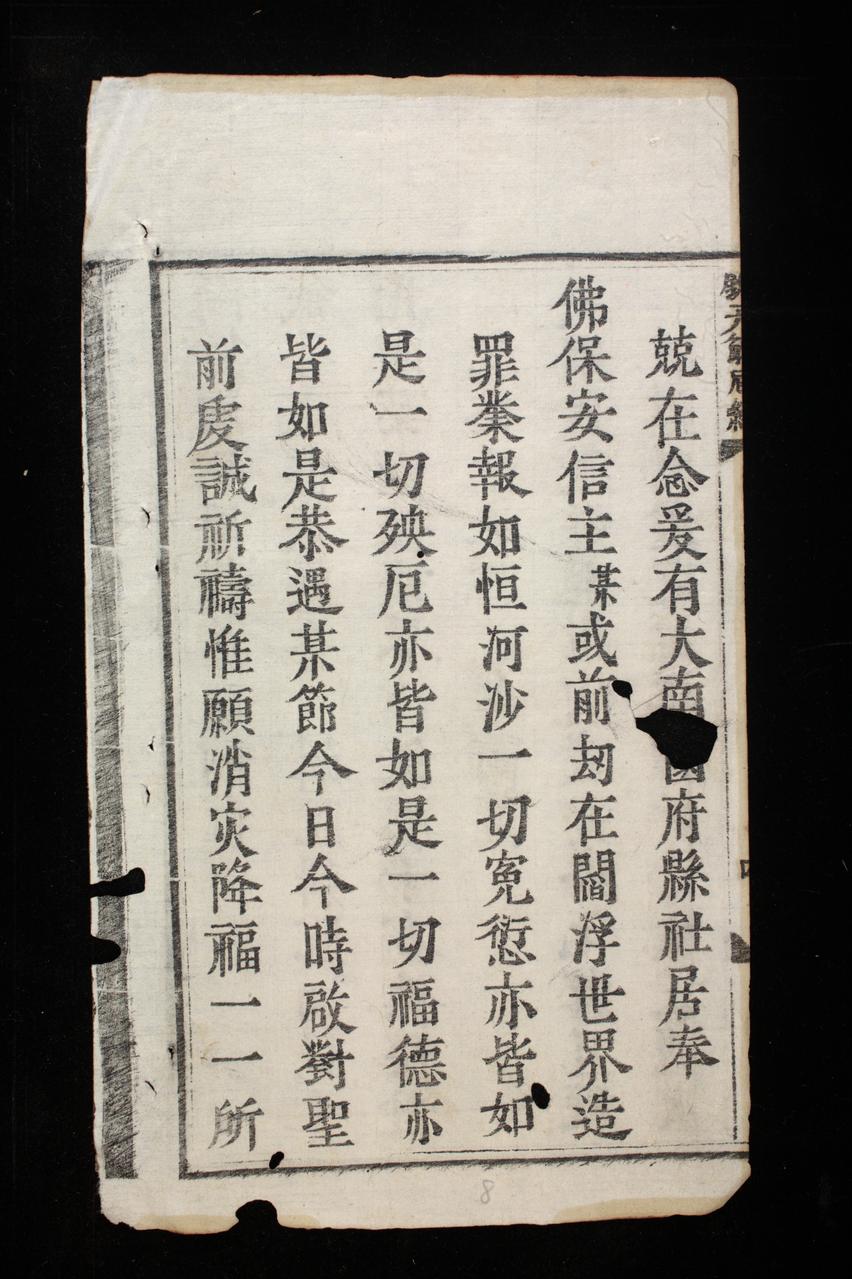 兢在念爰有大南國府縣社居奉
佛保安信主某或前刼在閻浮世界造
罪業報如恒河沙一切寃愆亦皆如
是一切殃厄亦皆如是一切福德亦
皆如是恭遇某節今日今時啟對聖
前虔誠祈禱惟願消灾降福一一所
8